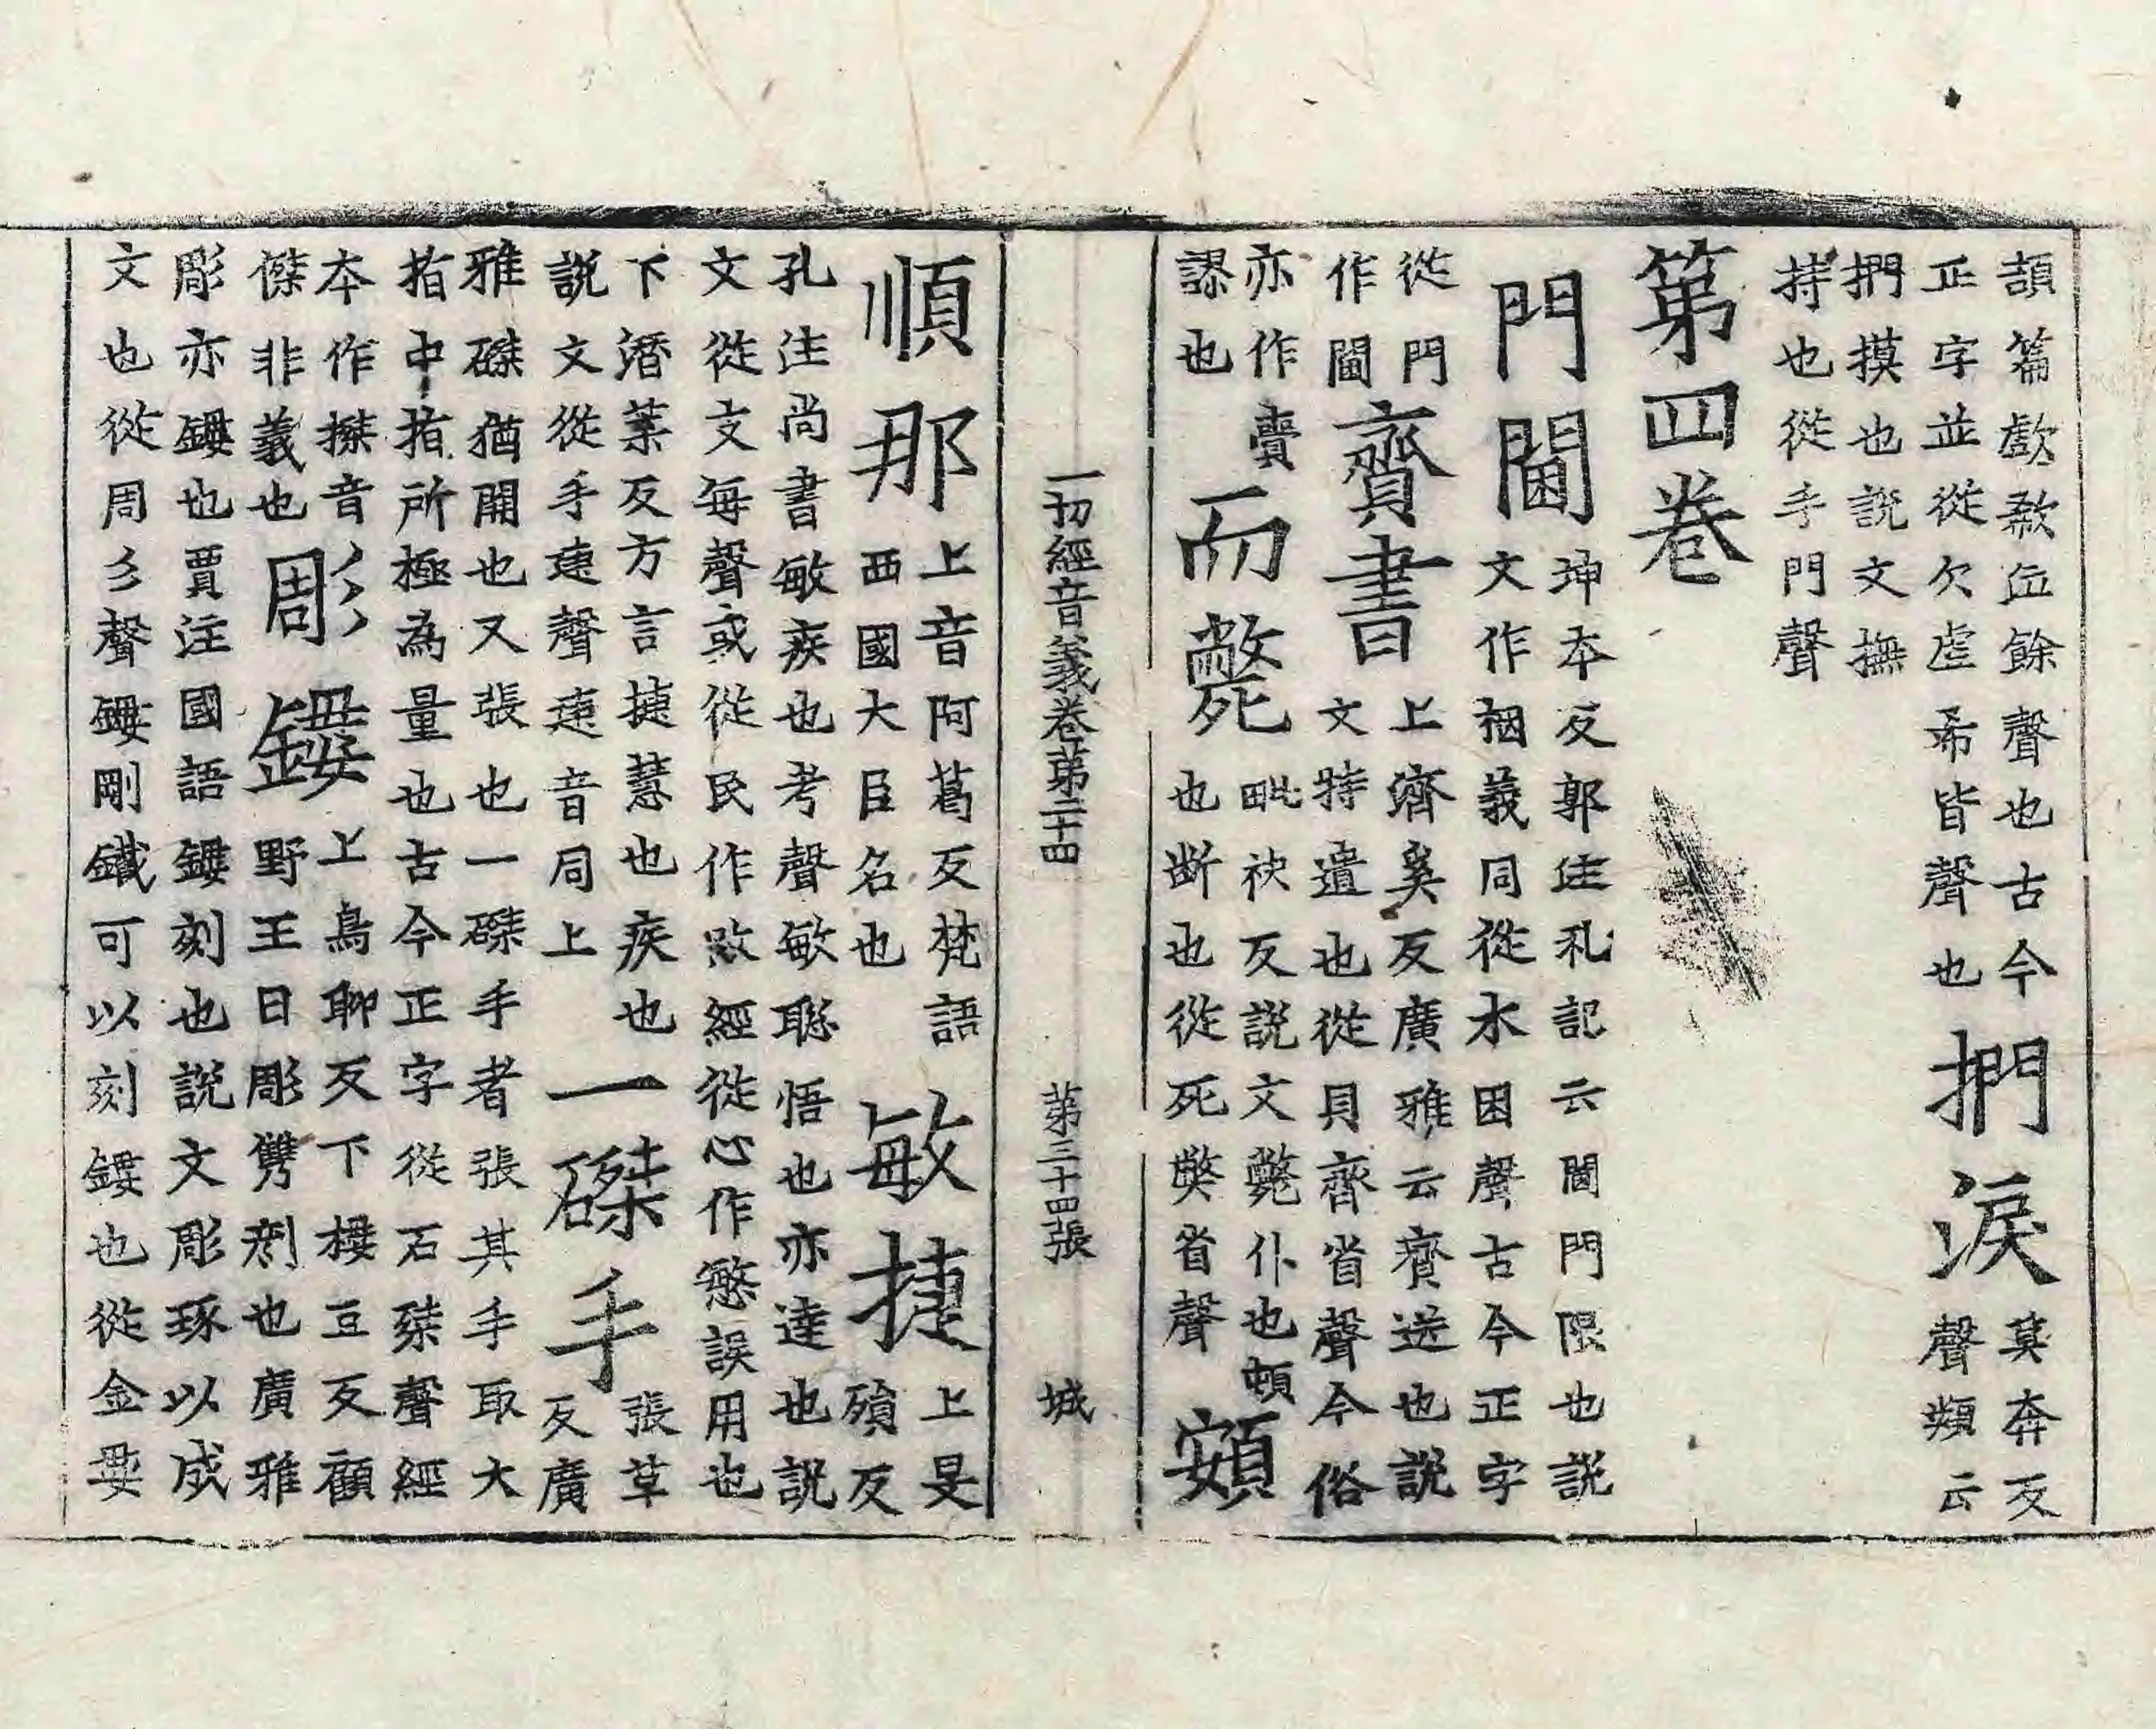 頡篇歔欷泣餘聲也古今
正字並從欠虛希皆聲也
捫淚
莫奔反
聲類云
捫摸也說文撫
持也從手門聲
第四卷
門閫
坤本反郭注礼記云閫門限也說
文作梱義同從木困聲古今正字
從門
作閫
齎書
上濟奚反廣雅云齎送也說
文持遺也從貝齊省聲今俗
亦作賷
謬也
而斃
毗袂反說文斃仆也頓
也斷也從死獘省聲
頞
一切經音義卷第二十四 第三十四張 城
順那
上音阿葛反梵語
西國大臣名也
敏捷
上旻
殞反
孔注尚書敏疾也考聲敏聡悟也亦達也說
文從攴每聲或從民作敃經從心作慜誤用也
下潛葉反方言揵慧也疾也
說文從手疌聲疌音同上
一磔手
張革
反廣
雅磔猶開也又張也一磔手者張其手取大
指中指所極為量也古今正字從石桀聲經
本作搩音
傑非義也
彫鏤
上鳥聊反下樓豆反顧
野王曰彫鐫剜也廣雅
彫亦鏤也賈注國語鏤刻也說文彫琢以成
文也從周彡聲鏤剛鐵可以刻鏤也從金婁